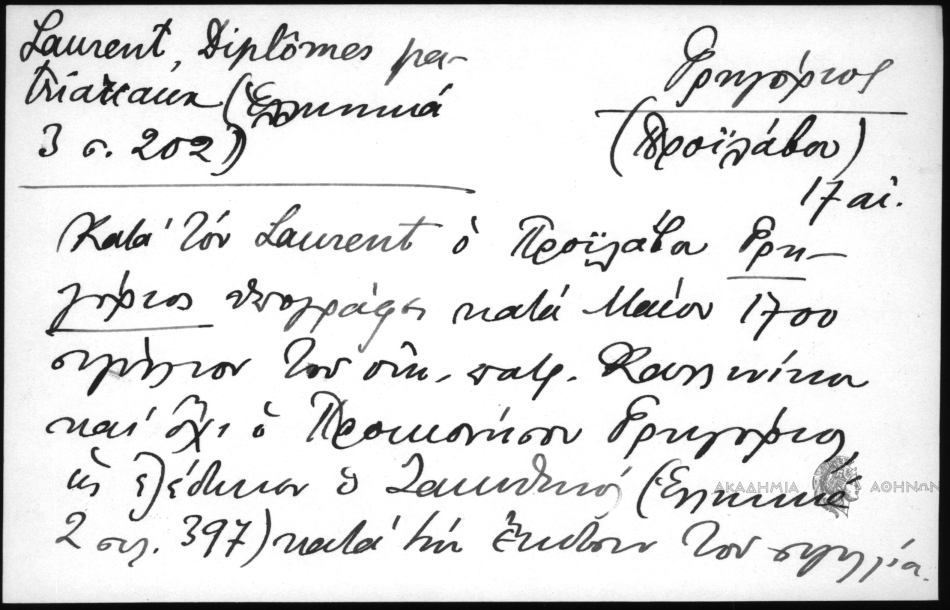 Laurent, Diplômes pa-
triarcaux (Ἑλληνικά
3 σ. 202)
Γρηγόριος
(Προϊλάβου)
17 αἰ.
Κατά τόν Laurent ὁ Προϊλάβου Γρη-
γόριος ὑπογράφει κατά Μαΐον 1700
σιγίλλιον τοῦ οἰκ. πατρ. Καλλινίκου
καί ὄχι ὁ Προικονήσου Γρηγόριος
ὡς ἐξέδωκεν ὁ Ζακυθηνός (Ἑλληνικά
2 σελ. 397) κατά τήν ἔκδοσιν τοῦ σιγιλλίου.
ΑΚΑΔΗΜΙΑ ΑΘΗΝΩΝ